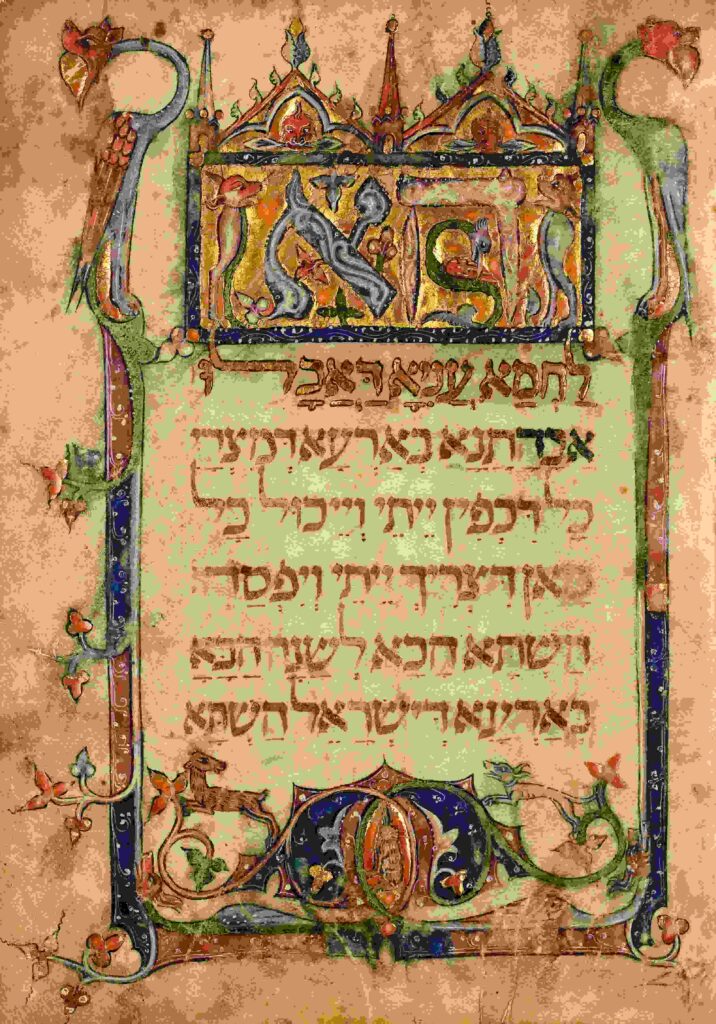 הא
לַחְמָא עַנְיָא דַאֲכָלוּ
אבהתנא בארעא דמצרי
כָל דִכְפִין יֵיתֵי וְיֵיכוּל כָל
מאן דִצְרִיךְ יֵיתֵי וְיִפְסַח
הָשַׁתָּא הָכָא לְשָׁנָה הַבָּאָ
בארעא דישראל הָשַׁתָּא